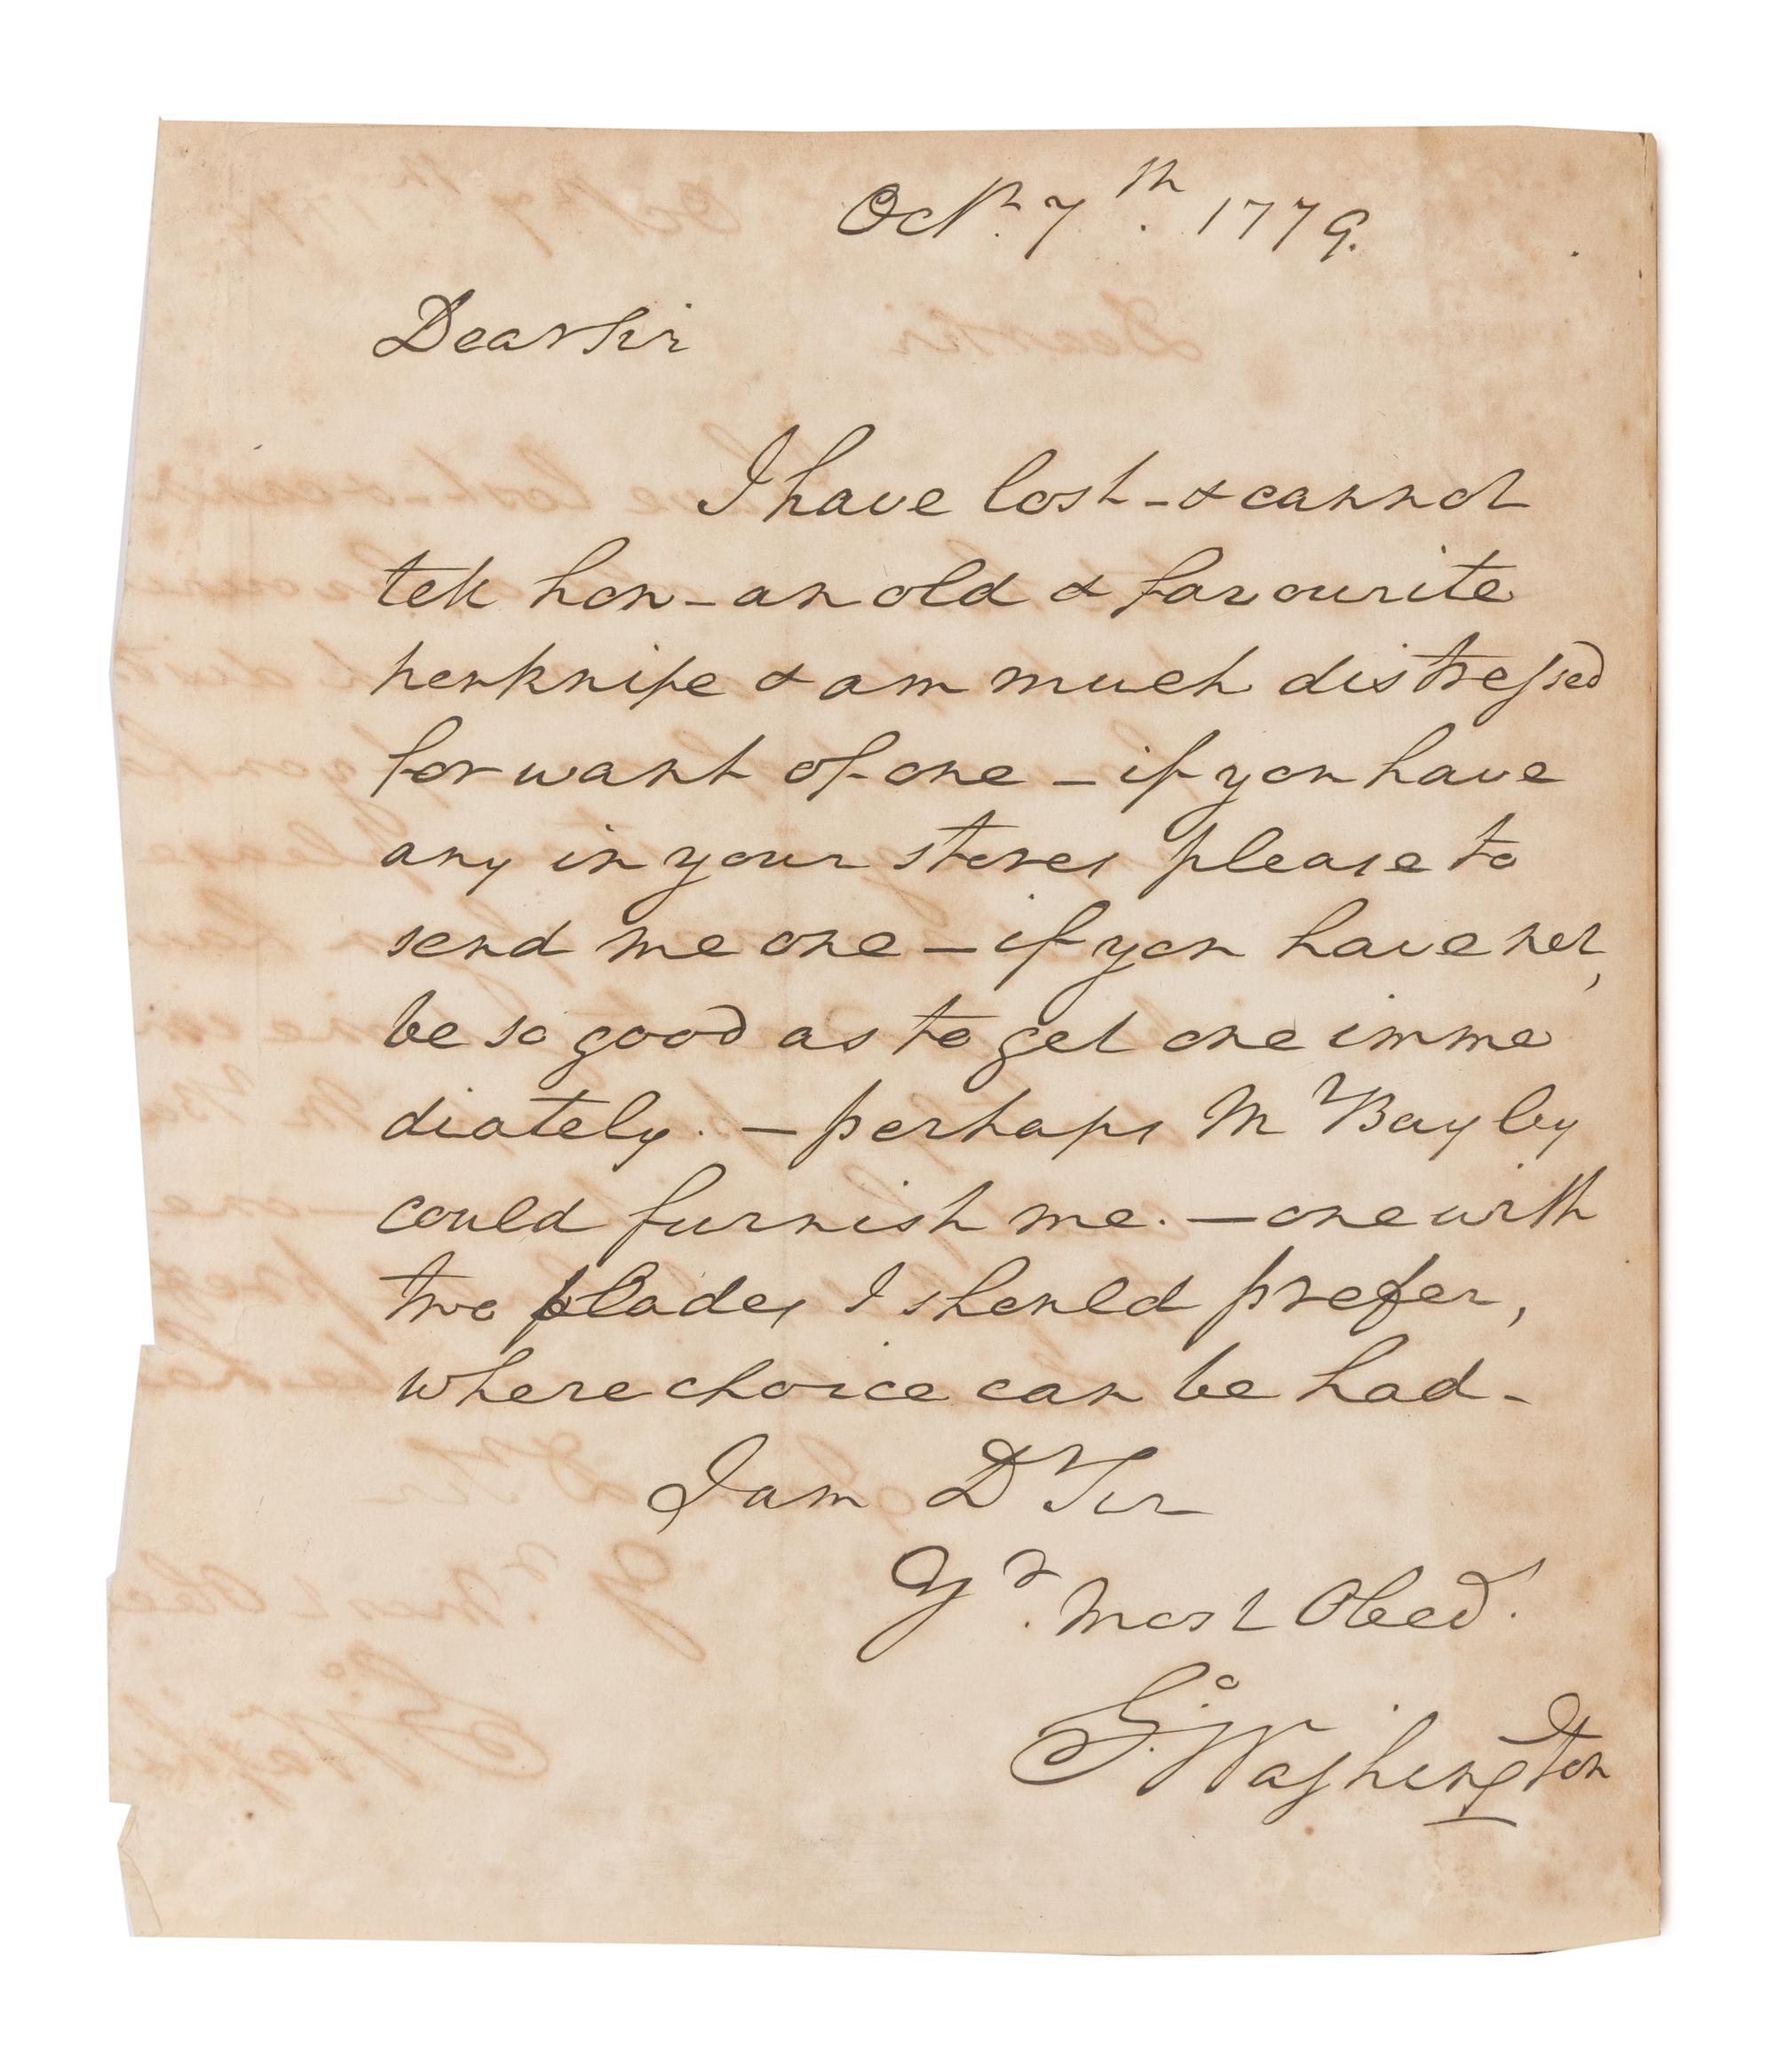 Octr. 7th. 1779.
Dear Sir
I have lost - & cannot
tell how - an old & favourite
penknife & am much distressed
for want of one - if you have
any in your stores please to
send me one - if you have not,
be so good as to get one imme
diately. - perhaps Mr Bayley
could furnish me. - one with
two blades I should prefer,
where choice can be had -
I am Dr Sir
Yr. Most Obed.
Go. Washington